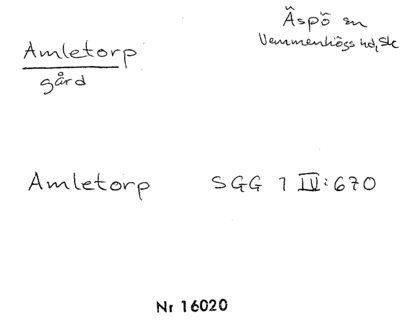 Amletorp
gård
Äspö sn
Vemmenhögs hd, Sk
Amletorp SGG 1 IV:670
Nr 16020